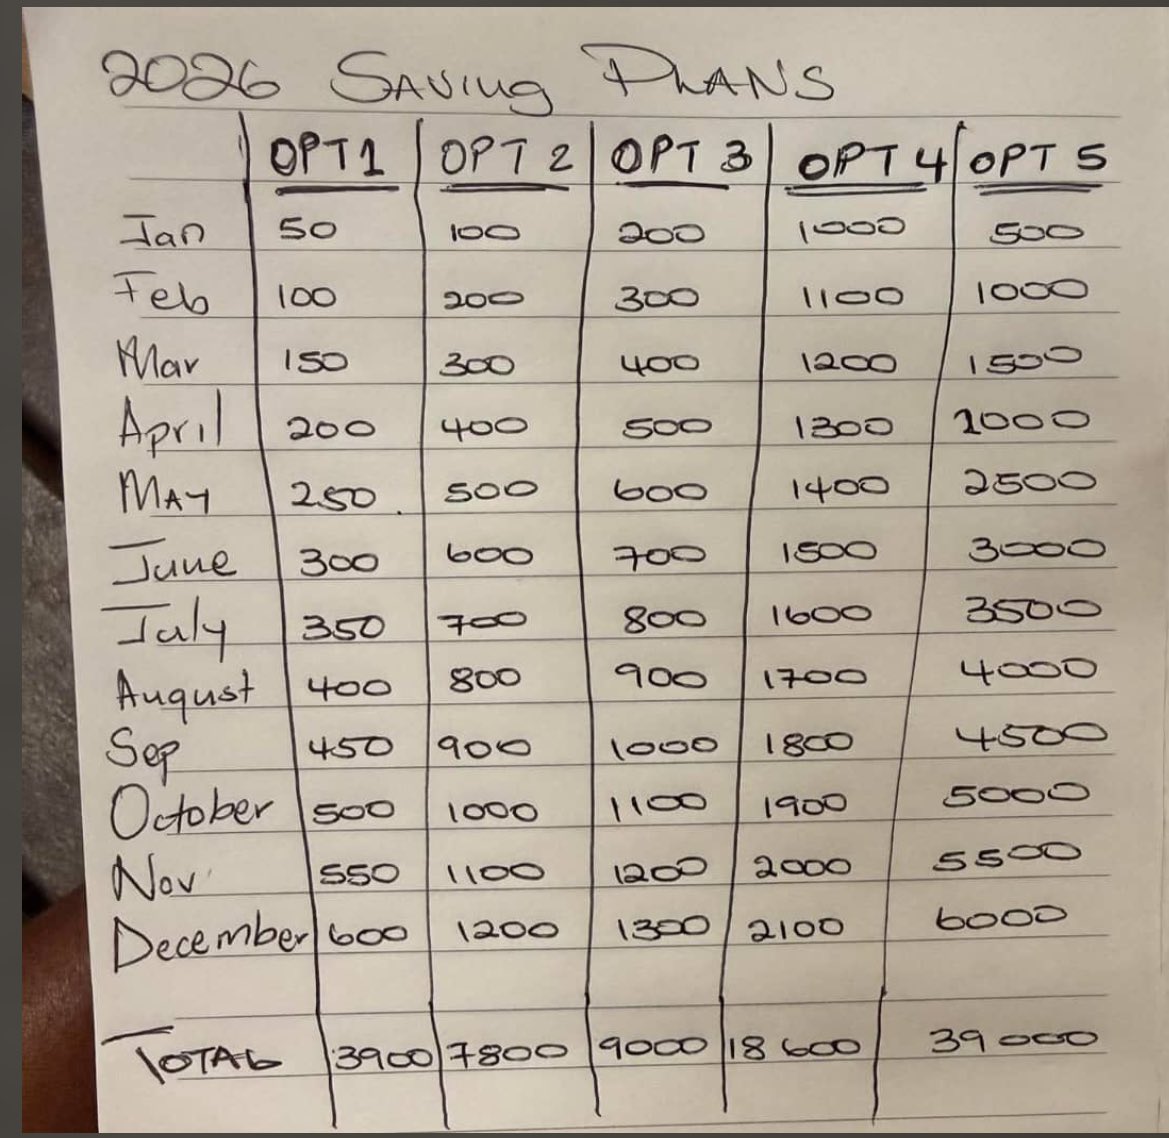 2026 SAVING PLANS
OPT1 OPT 2 OPT 3 OPT 4 OPT 5
Jan 50 100 200 1000 500
Feb 100 200 300 1100 1000
Mar 150 300 400 1200 1500
April 200 400 500 1300 2000
MAY 250 500 600 1400 2500
June 300 600 700 1500 3000
July 350 700 800 1600 3500
August 400 800 900 1700 4000
Sep 450 900 1000 1800 4500
October 500 1000 1100 1900 5000
Nov 550 1100 1200 2000 5500
December 600 1200 1300 2100 6000
TOTAL 3900 7800 9000 18 600 39 000